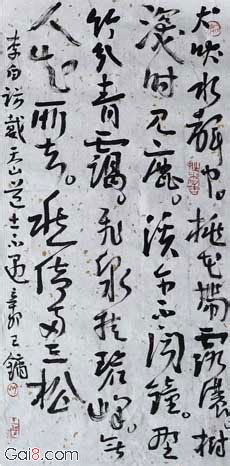 犬吠水聲中。桃花帶露濃。樹
深时见鹿。溪午不闻鐘。野
竹分青靄。飛泉挂碧峰。无
人知所去。愁倚两三松
李白訪戴天山道士不遇 辛卯 王鏞
Gai8.com